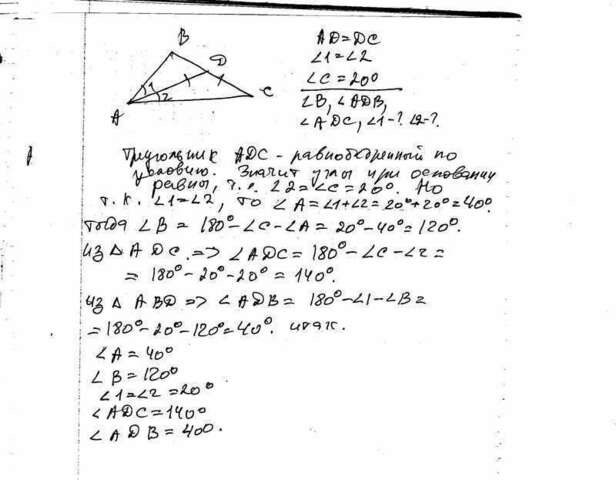 B
D
1
2
A
C
AD=DC
∠1=∠2
∠C=20°
∠B, ∠ADB,
∠ADC, ∠1-? ∠2-?
Треугольник ADC - равнобедренный по
условию. Значит углы при основании
равны, т.е. ∠2=∠C=20°. Но
т.к. ∠1=∠2, то ∠A=∠1+∠2=20°+20°=40°.
тогда ∠B = 180°-∠C-∠A = 20°-40°=120°.
из △ ADC => ∠ADC = 180°-∠C-∠2=
= 180°-20°-20° = 140°.
из △ ABD => ∠ADB = 180°-∠1-∠B=
=180°-20°-120°=40°. итак.
∠A=40°
∠B=120°
∠1=∠2=20°
∠ADC=140°
∠ADB=40°.